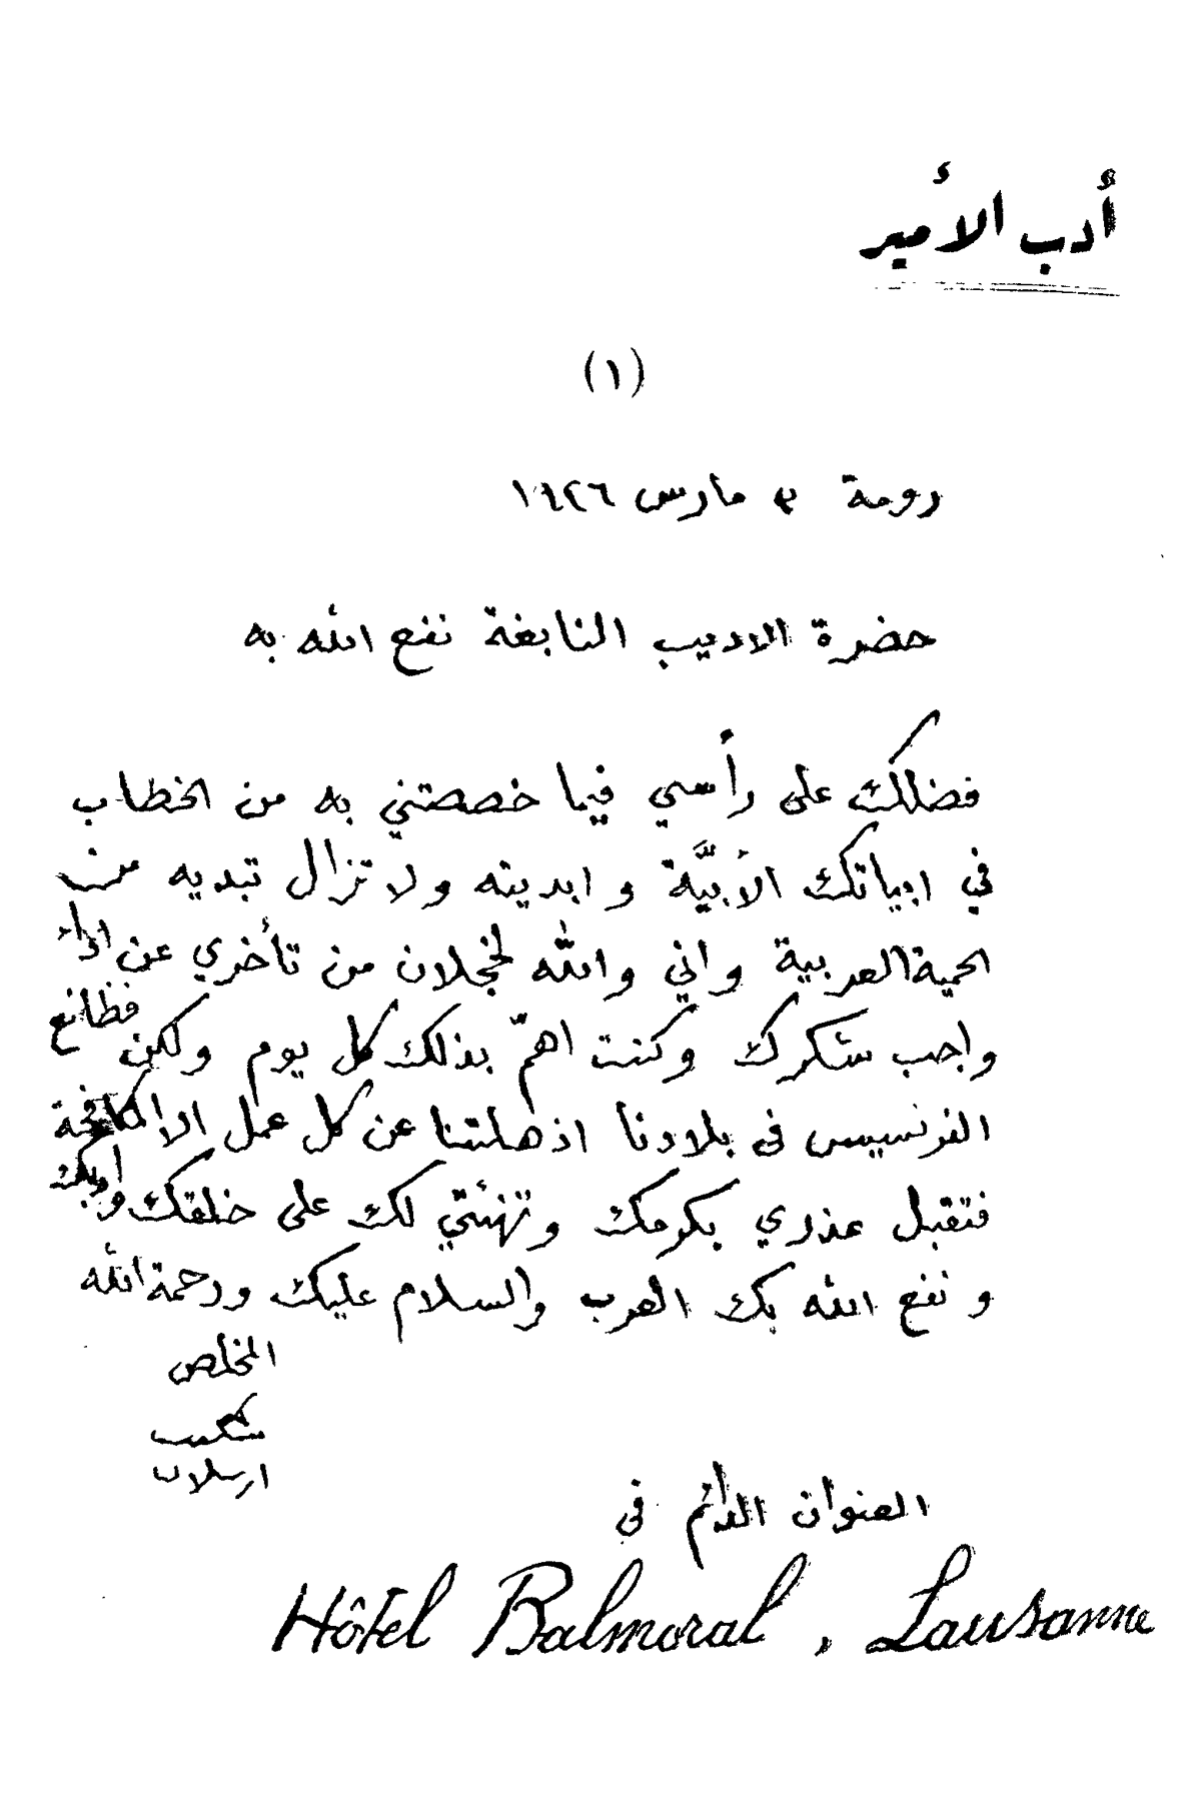 أدب الأمير
(١)
رومة ٣ مارس ١٩٢٦
حضرة الاديب النابغة نفع الله به
فضلك على رأسي فيما خصصتني به من الخطاب
في ابياتك الأبيَّة وابديته ولا تزال تبديه من
الحمية العربية واني والله لخجلان من تأخري عن اداء
واجب شكرك وكنت اهمّ بذلك كل يوم ولكن فظائع
الفرنسيس في بلادنا اذهلتنا عن كل عمل الا المكافحة
فتقبل عذري بكرمك وتهنئتي لك على خلقك وادبك
ونفع الله بك العرب والسلام عليك ورحمة الله
المخلص
شكيب
ارسلان
العنوان الدائم في
Hôtel Balmoral, Lausanne